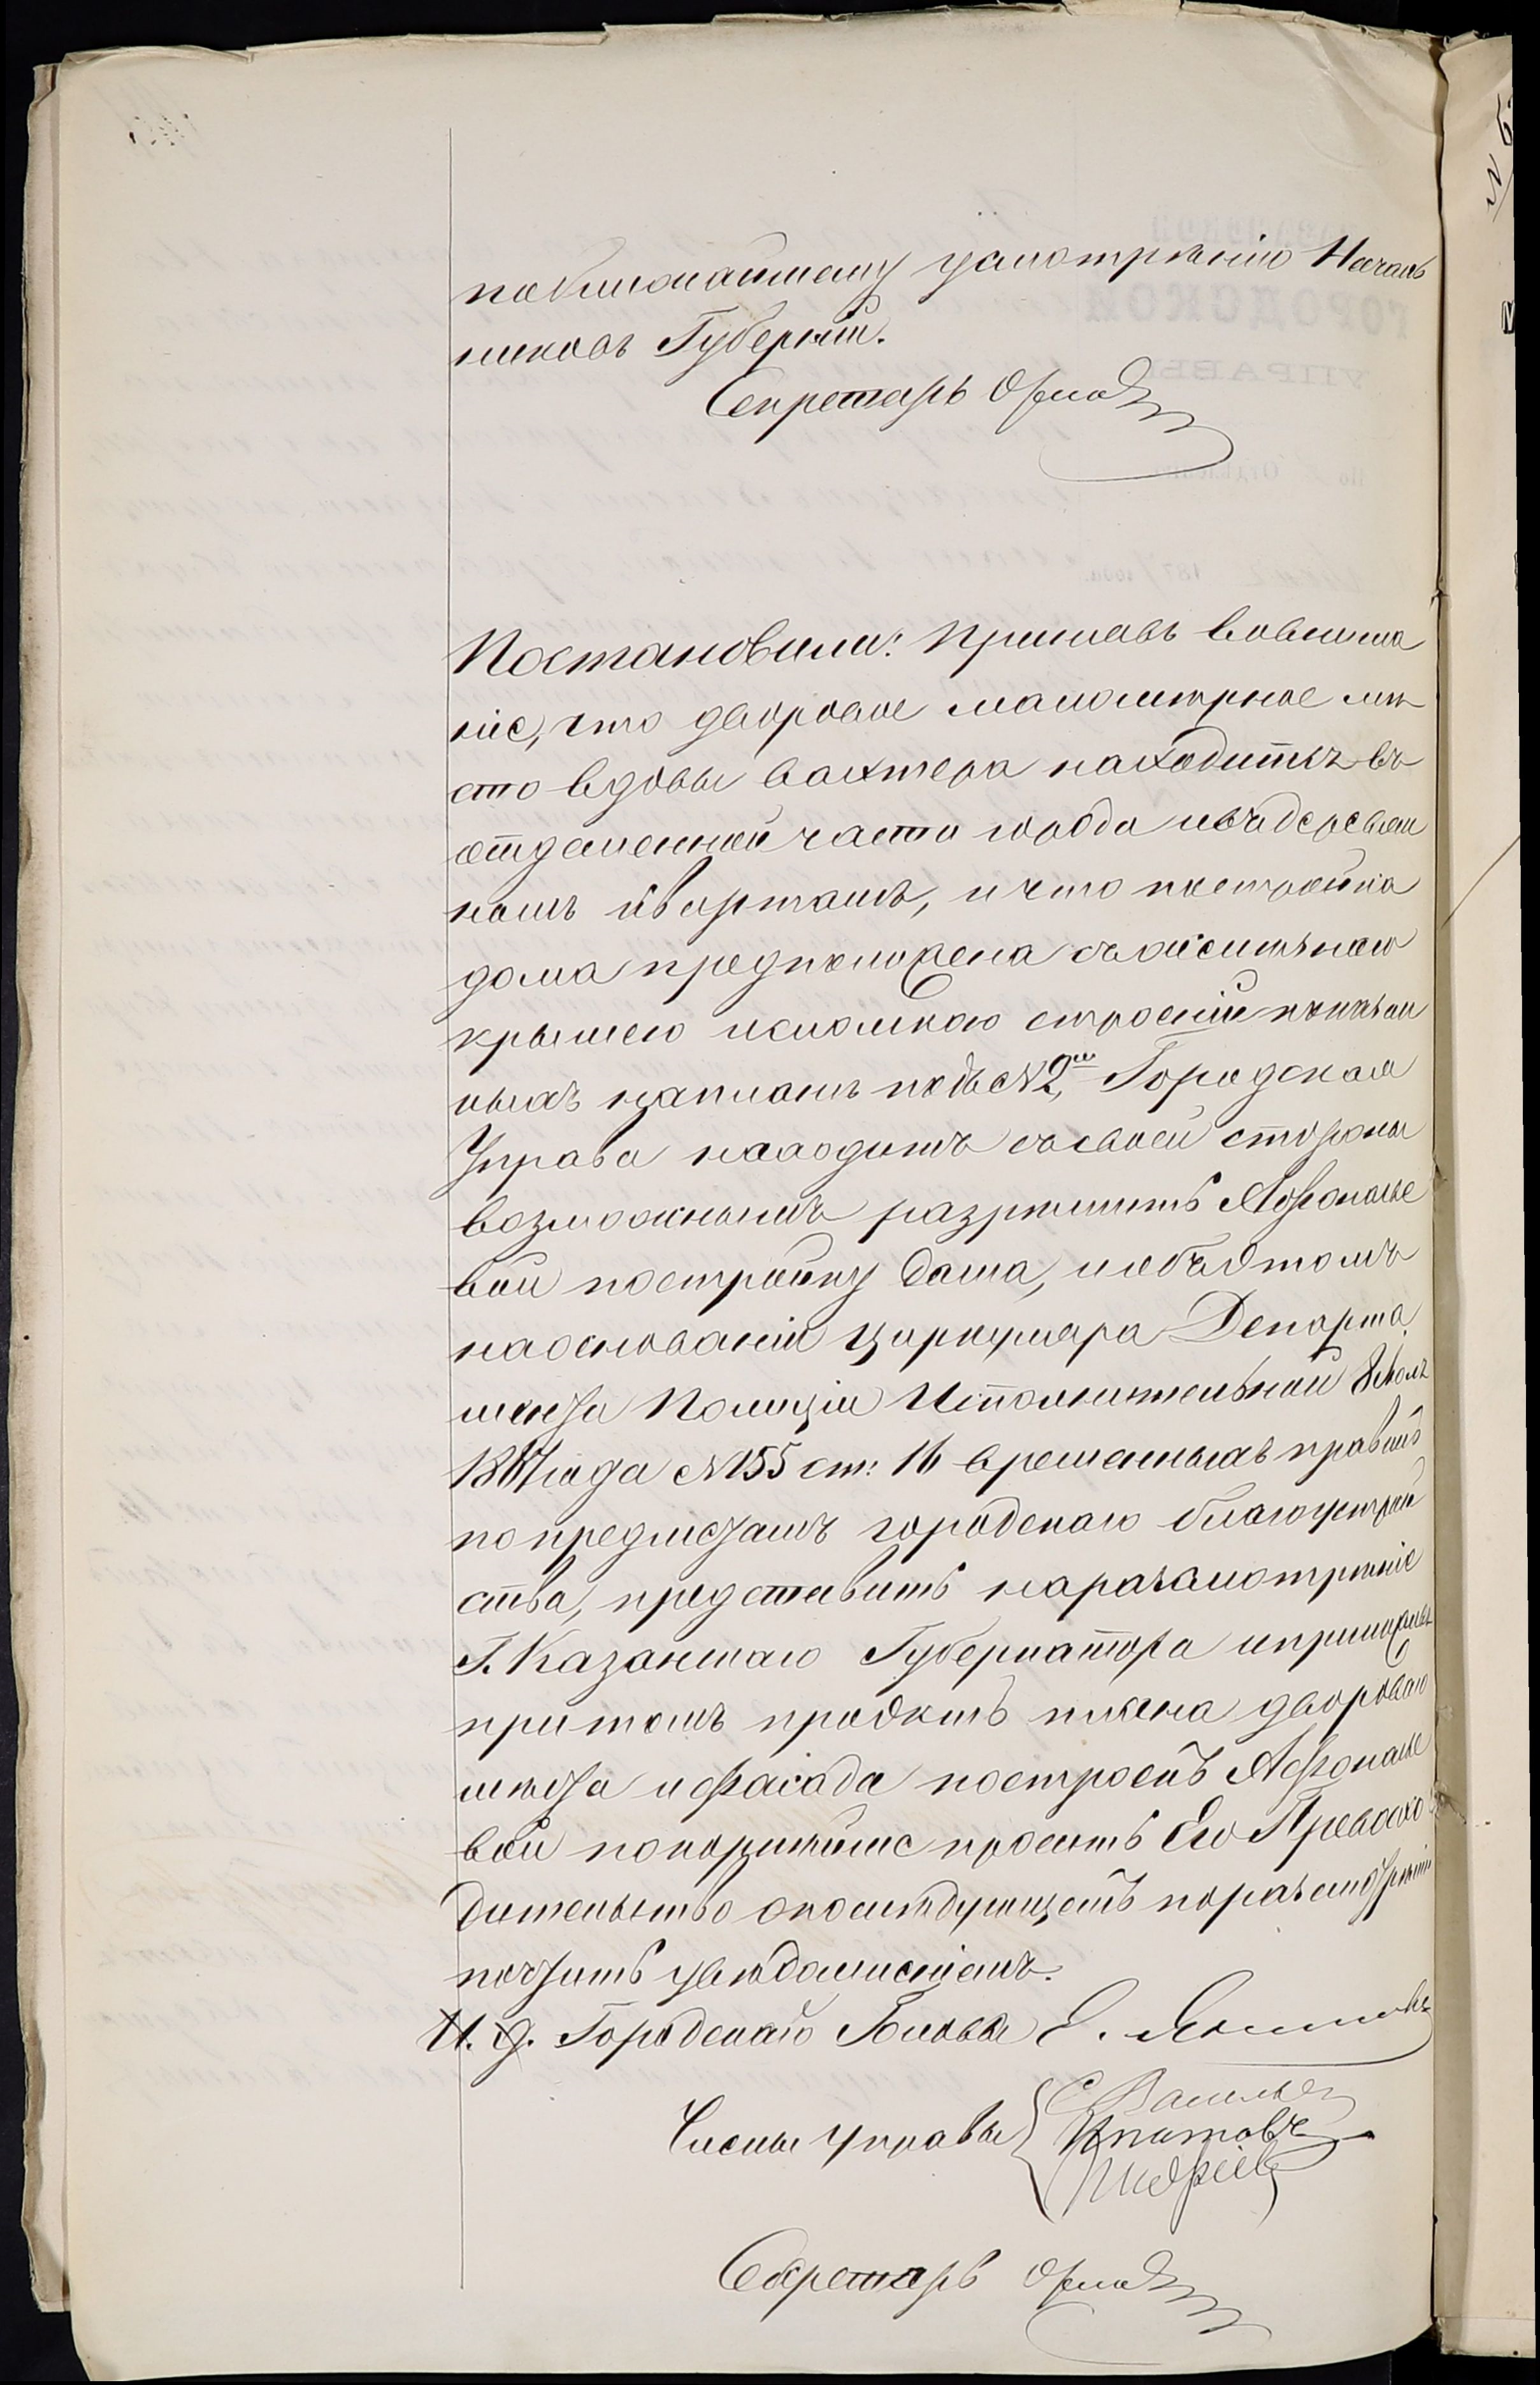 поближайшему усмотрѣнію Началь
никовъ Губерніи.
Секретарь Орлов
Постановили: Принявъ вовнима
ніе, что дворовое маломѣрное мѣ
сто вдовы вахтера находится въ
отдаленной части города и въ деревян
номъ кварталѣ, и что постройка
дома предположена съ желѣзною
крышею и сломкою строеній показан
ныхъ на планѣ подъ №2мъ, Городская
Управа находитъ съ своей стороны
возможнымъ разрѣшить Афонасье
вой постройку дома, и объ этомъ
на основаніи циркуляра Департа
мента Полиціи Исполнительной 8 Іюля
1867 года №155 ст: 16 временныхъ правилъ
по предметамъ городскаго благоустрой
ства, представить на разсмотрѣніе
Г. Казанскаго Губернатора и приложивъ
при томъ проэктъ плана двороваго
мѣста и фасада построекъ Афонасье
вой покорнѣйше просить Его Превосхо
дительство о послѣдующемъ поразсмотрѣніи
почтить увѣдомленіемъ.
И. д. Городскаго Головы Е.
Члены Управы С. Васильев
Ипатовъ
Секретарь Орлов
ГОРОДСКОЙ
УПРАВЫ
По Отдѣленію
187 года